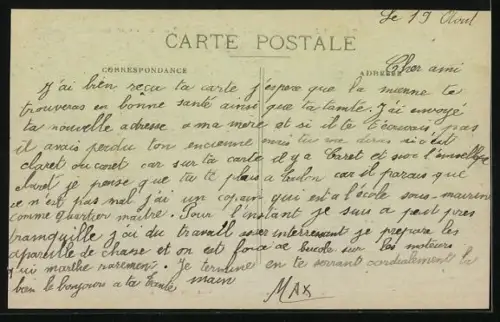 Le 19 Août
CARTE POSTALE
CORRESPONDANCE
ADRESSE
Cher ami
J'ai bien reçu ta carte j'espère que la mienne te
trouveras en bonne santé ainsi que ta tante. J'ai envoyé
ta nouvelle adresse a ma mere et si il te écrivais, pas
il avais perdu ton ancienne mais tu me diras si c'est
claret ou caret car sur ta carte il y a Carret et sur l'enveloppe
claret je pense que tu te plais a Toulon car il parais que
ce n'est pas mal j'ai un copain qui est a l'école sous-marine
comme quartier maitre. Pour l'instant je suis a peut pres
tranquille j'ai du travail assez interressent je prepare les
appareille de chasse et on est force de sur les moteurs
qui marthe rarement. Je termine en te serrant cordialement la
bien le bonjours a ta tante main
MAX